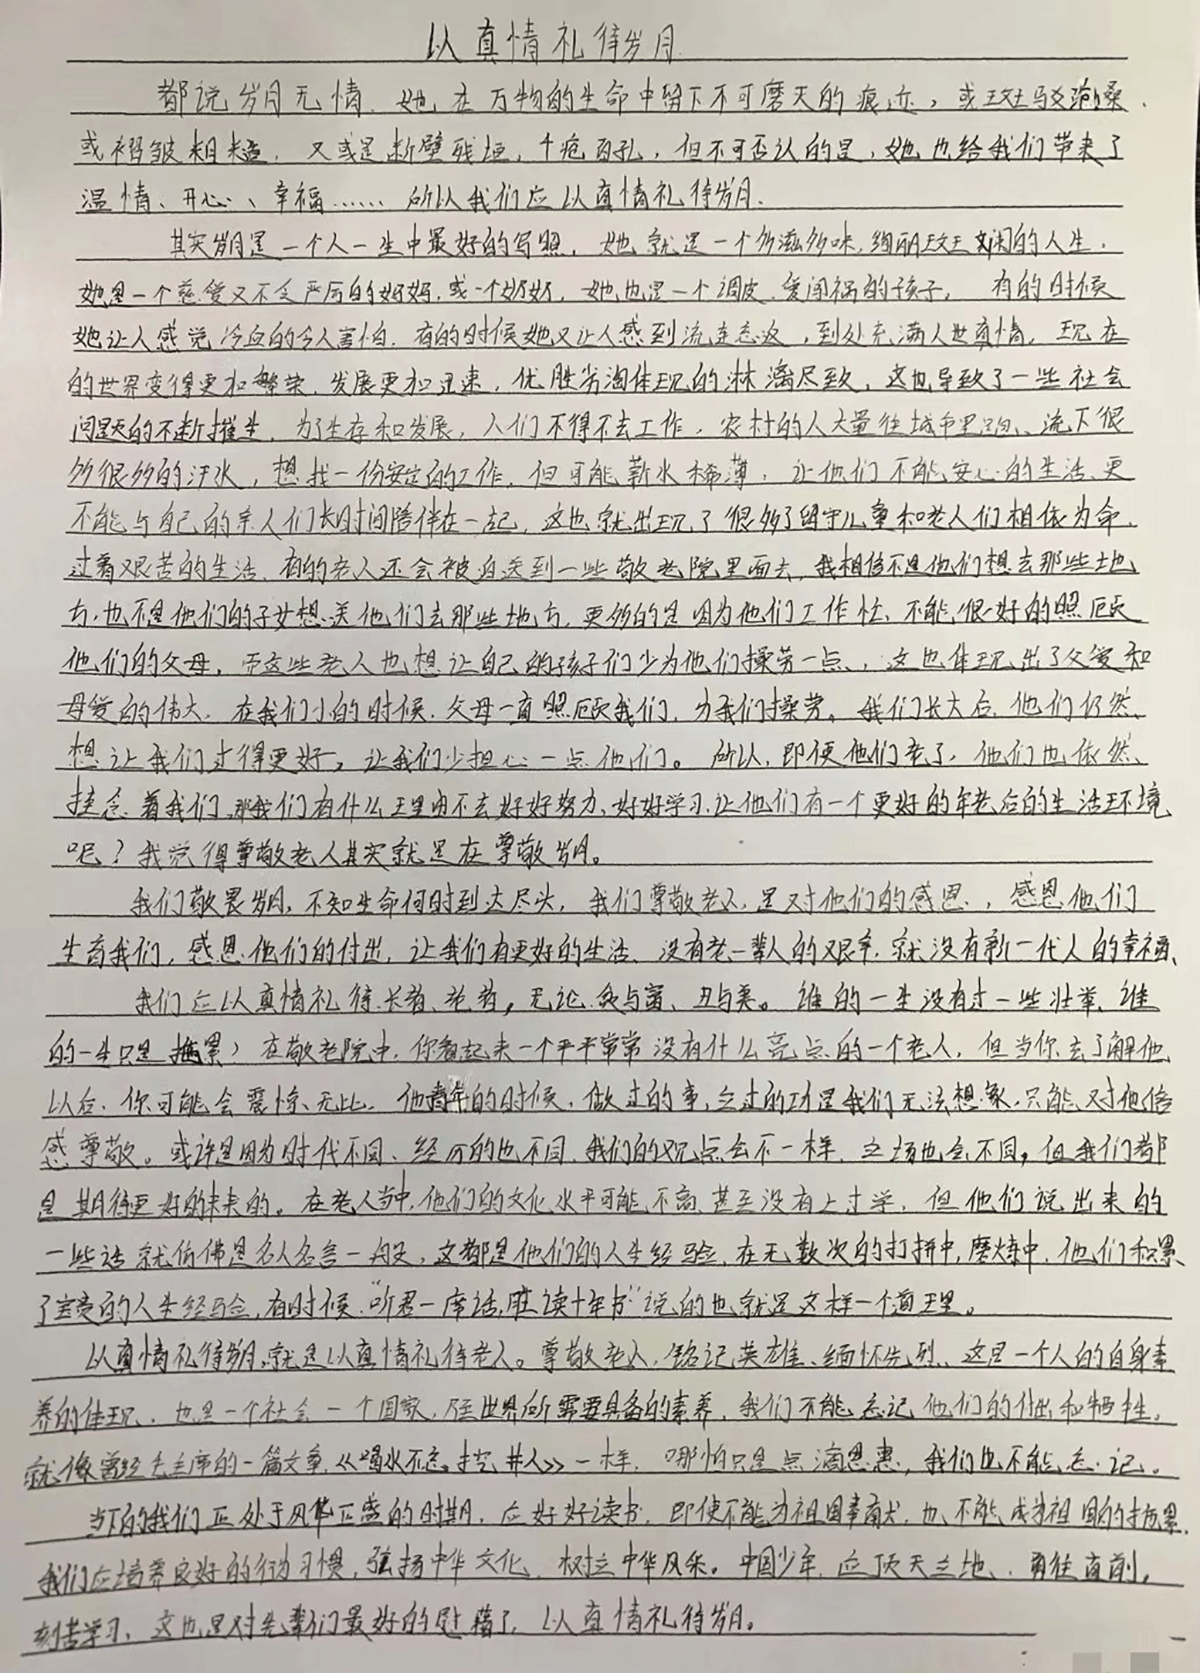 以真情礼待岁月
都说岁月无情,她在万物的生命中留下不可磨灭的痕迹,或斑驳沧桑,
或褶皱粗糙,又或是断壁残垣,千疮百孔,但不可否认的是,她也给我们带来了
温情、开心、幸福……所以我们应以真情礼待岁月.
其实岁月是一个人一生中最好的写照,她就是一个多滋多味,绚丽斑斓的人生.
她是一个慈爱又不乏严厉的妈妈,或一个奶奶,她也是一个调皮,爱闯祸的孩子,有的时候
她让人感觉冷血的令人害怕,有的时候她又让人感到流连忘返,到处充满人世真情,现在
的世界变得更加繁荣,发展更加迅速,优胜劣淘体现的淋漓尽致,这也导致了一些社会
问题的不断摧生,为了生存和发展,人们不得不去工作,农村的人大量往城市里跑、流下很
多很多的汗水,想找一份安定的工作,但可能薪水稀薄,让他们不能安心的生活、更
不能与自己的亲人们长时间陪伴在一起,这也就出现了很多了留守儿童和老人们相依为命,
过着艰苦的生活,有的老人还会被迫送到一些敬老院里面去,我相信不是他们想去那些地
方,也不是他们的子女想送他们去那些地方,更多的是因为他们工作忙,不能很好的照顾
他们的父母,而这些老人也想让自己的孩子们少为他们操劳一点,这也体现出了父爱和
母爱的伟大,在我们小的时候,父母一直照顾我们,为我们操劳。我们长大后,他们仍然
想让我们过得更好,让我们少担心一点他们。所以,即便他们老了,他们也依然
挂念着我们,那我们有什么理由不去好好努力,好好学习,让他们有一个更好的年老后的生活环境
呢?我觉得尊敬老人其实就是在尊敬岁月。
我们敬畏岁月,不知生命何时到达尽头,我们尊敬老人,是对他们的感恩,感恩他们
生育我们,感恩他们的付出,让我们有更好的生活、没有老一辈人的艰辛,就没有新一代人的幸福、
我们应以真情礼待长者、老者,无论贫与富、丑与美。谁的一生没有过一些壮举,谁
的一生只是拖累?在敬老院中,你看起来一个平平常常没有什么亮点的一个老人,但当你去了解他
以后,你可能会震惊无比,他青年的时候,做过的事,立过的功是我们无法想象,只能对他倍
感尊敬。或许是因为时代不同、经历的也不同,我们的观点会不一样,立场也会不同,但我们都
是期待更好的未来的。在老人当中,他们的文化水平可能不高,甚至没有上过学,但他们说出来的
一些话就仿佛是名人名言一般,这都是他们的人生经验,在无数次的打拼中,磨炼中,他们积累
了宝贵的人生经验,有时候,“听君一席话,胜读十年书”说的也就是这样一个道理。
以真情礼待岁月,就是以真情礼待老人。尊敬老人,铭记英雄、缅怀先烈、这是一个人的自身素
养的体现,也是一个社会一个国家,至世界所需要具备的素养,我们不能忘记他们的付出和牺牲,
就像曾经毛主席的一篇文章,《喝水不忘挖井人》一样,哪怕只是点滴恩惠,我们也不能忘记。
当下的我们正处于风华正盛的时期,应好好读书,即使不能为祖国奉献,也不能成为祖国的拖累,
我们应培养良好的行为习惯,弘扬中华文化,树立中华风采。中国少年,应顶天立地、勇往直前,
刻苦学习、这也是对先辈们最好的慰藉了,以真情礼待岁月。